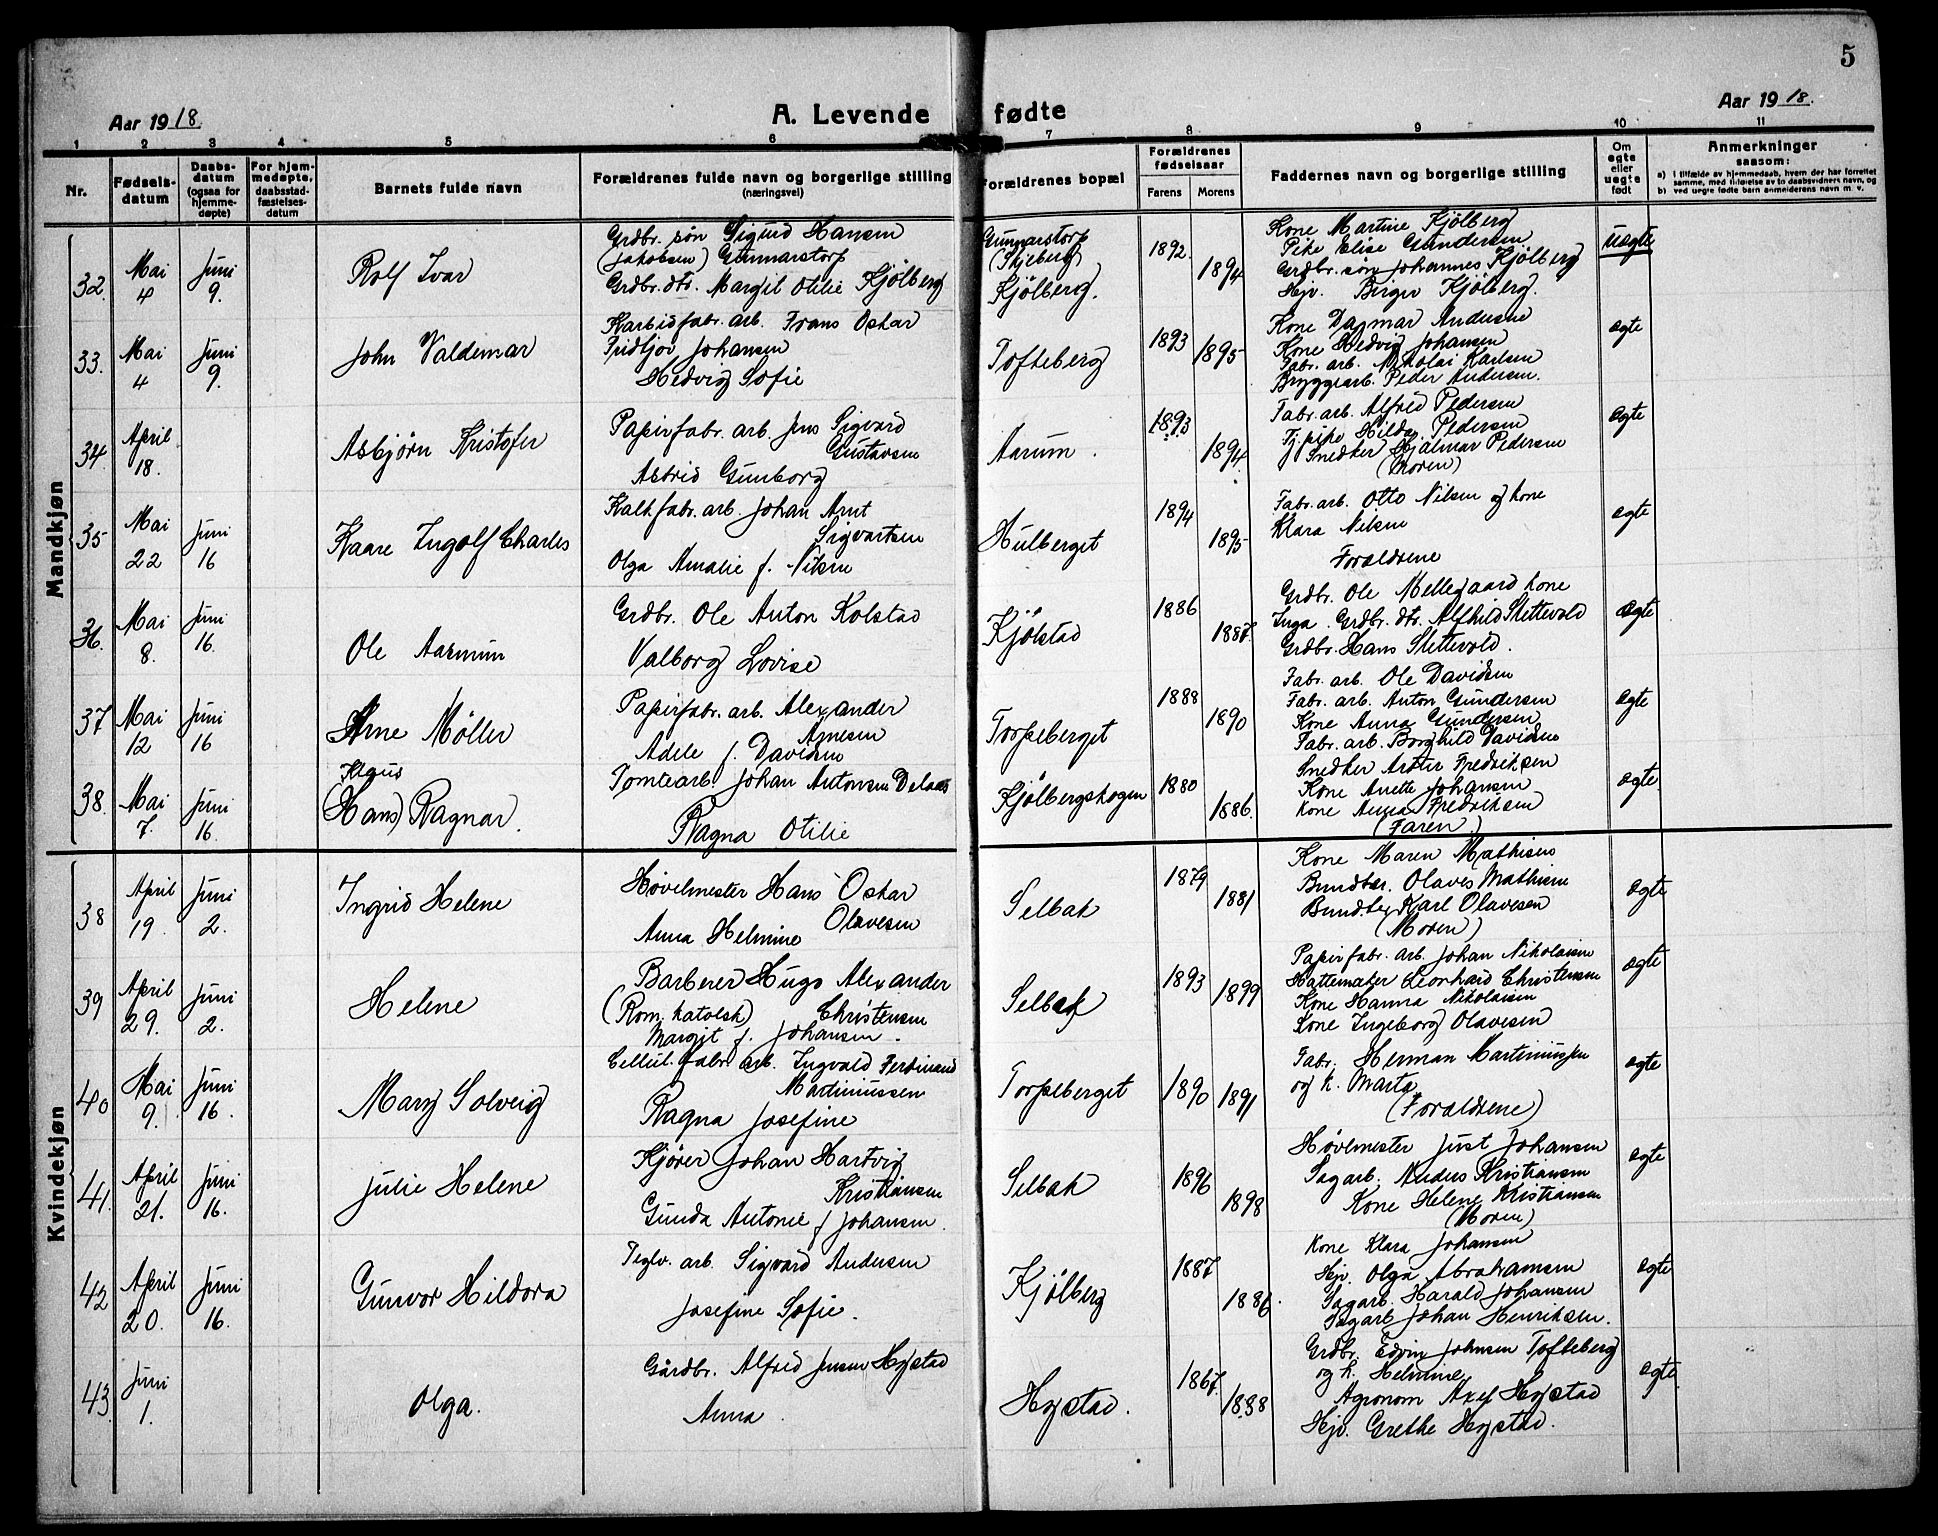 5
Aar 1918.
A. Levende fødte
Aar 1918.
1 2 3 4 5 6 7 8 9 10 11
Nr.
Fødsels-
datum
Daabs-
datum
(ogsaa for
hjemme-
døpte)
For hjem-
medøpte,
daabsstad-
fæstelses-
datum
Barnets fulde navn
Forældrenes fulde navn og borgerlige stilling
(næringsvei)
Forældrenes bopæl
Forældrenes
fødselsaar
Farens Morens
Faddernes navn og borgerlige stilling
Om
egte
eller
uegte
født
Anmerkninger
saasom:
a) i tilfælde av hjemmedaab, hvem der har forrettet
samme, med tilføielse av to daabsvidners navn, og
b) ved uegte fødte barn anmelderens navn m. v.
Mandkjøn
32. Mai 4 Juni 9.
Rolf Ivar
Grdbr. søn Sigurd Hansen
(Jakobsen) Gunnarstorp
Grdbr. dtr. Margit Otilie Kjølberg
Gunnarstorp
(Skjeberg)
Kjølberg.
1892. 1894
Kone Martine Kjølberg
Pike Elise Gundersen
Grdbr. søn Johannes Kjølberg
Hjv. Birger Kjølberg.
uegte
33. Mai 4 Juni 9.
John Valdemar
Karbidfabr. arb. Frans Oskar
Fridtjov Johansen
Hedvig Sofie
Tofteberg
1893 1895
Kone Dagmar Andersen
Kone Hedvig Johansen
Fabr. arb. Nikolai Karlsen
Bryggearb. Peder Andersen.
egte
34. April 18.
Asbjørn Kristofer
Papirfabr. arb. Jens Sigvard
Gustavsen
Astrid Gunborg
Aarum.
1893 1894.
Fabr. arb. Alfred Pedersen
Tj. pike Hilda Pedersen
Snedker Hjalmar Pedersen
(Moren)
egte
35 Mai 22 Juni 16
Kaare Ingolf Charles
Kalkfabr. arb. Johan Arnt
Sigvartsen
Olga Amalie f. Nilsen
Hulberget
1894 1895
Fabr. arb. Otto Nilsen og kone
Klara Nilsen
Forældrene
egte
36. Mai 8. Juni 16.
Ole Aarmun
Grdbr. Ole Anton Kolstad
Valborg Lovise
Kjølstad
1886 1887.
Grdbr. Ole Mellegaard kone
Inga. Grdbr. dtr. Alfhild Slettevold
Grdbr. Hans Slettevold.
egte
37 Mai 12 Juni 16
Arne Møller
Papirfabr. arb. Alexander
Arnesen
Adele f. Davidsen
Torpeberget
1888 1890
Fabr. arb. Ole Davidsen
Fabr. arb. Anton Gundersen
Kone Anna Gundersen
Fabr. arb. Borghild Davidsen
egte
38. Mai 7. Juni 16.
Klaus
(Hans) Ragnar.
Tomtearb. Johan Antonsen
Ragna Otilie
Kjølbergskogen
1880 1886.
Snedker Fredriksen
Kone Anette Johansen
Kone Anna Fredriksen
(Faren)
egte
Kvindekjøn
38 April 19. Juni 2.
Ingrid Helene
Høvelmester Hans Oskar
Olavesen
Anna Helmine
Selbak
1879 1881
Kone Maren Mathisen
Bundtbr. Olaves Mathisen
Bundtbr. Karl Olavesen
(Moren)
egte
39 April 29. Juni 2.
Helene
Barberer Hugo Alexander
(Rom. katolsk) Christensen
Margit f. Johansen.
Selbak
1893 1899
Papirfabr. arb. Johan Nikolaisen
Hattemaker Leonhard Christensen
Kone Hanna Nikolaisen
Kone Ingeborg Olavesen
egte
40 Mai 9. Juni 16.
Mary Solveig
Cellul. fabr. arb. Ingvald Ferdinand
Martiniussen
Ragna Josefine
Torpeberget
1890 1891
Fabr. Herman Martiniussen
og k. Marta
(Forældrene)
egte
41. April 21. Juni 16.
Julie Helene
Kjører Johan Hartvig
Kristiansen
Gunda Antonie f Johansen.
Selbak
1896 1898
Høvlmester Just Johansen
Sagarb. Anders Kristiansen
Kone Helene Kristiansen
(Moren)
egte
42 April 20. Juni 16.
Gunvor Hildora
Teglv. arb. Sigvard Andersen
Josefine Sofie.
Kjølberg
1887 1886.
Kone Klara Johansen
Hjv. Olga Abrahamsen
Sagarb. Harald Johansen
Sagarb. Johan Henriksen.
egte
43 Juni 1.
Olga.
Gårdbr. Alfred Jensen Hystad
Anna
Hystad.
1867. 1888
Grdbr. Edvin Johnsen Tofteberg
og k. Helmine
Agronom Axel Hystad
Hjv. Grethe Hystad.
egte